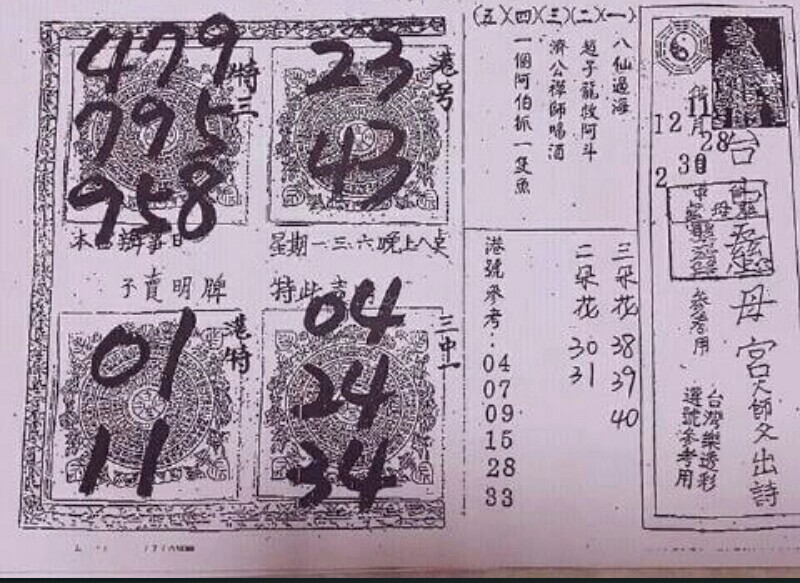 台
母宮天師父出詩
台灣樂透彩
選號參考用
參考用
11 28
12 30
2
(一)八仙過海
(二)趙子龍救阿斗
(三)濟公禪師喝酒
(四)一個阿伯抓一隻魚
(五)
三朵花 38 39 40
二朵花 30 31
港號參考:04 07 09 15 28 33
特三
479
795
958
港号
23
43
星期一三六晚上八
子賣明牌
特此
港特
01
11
三中一
04
24
34